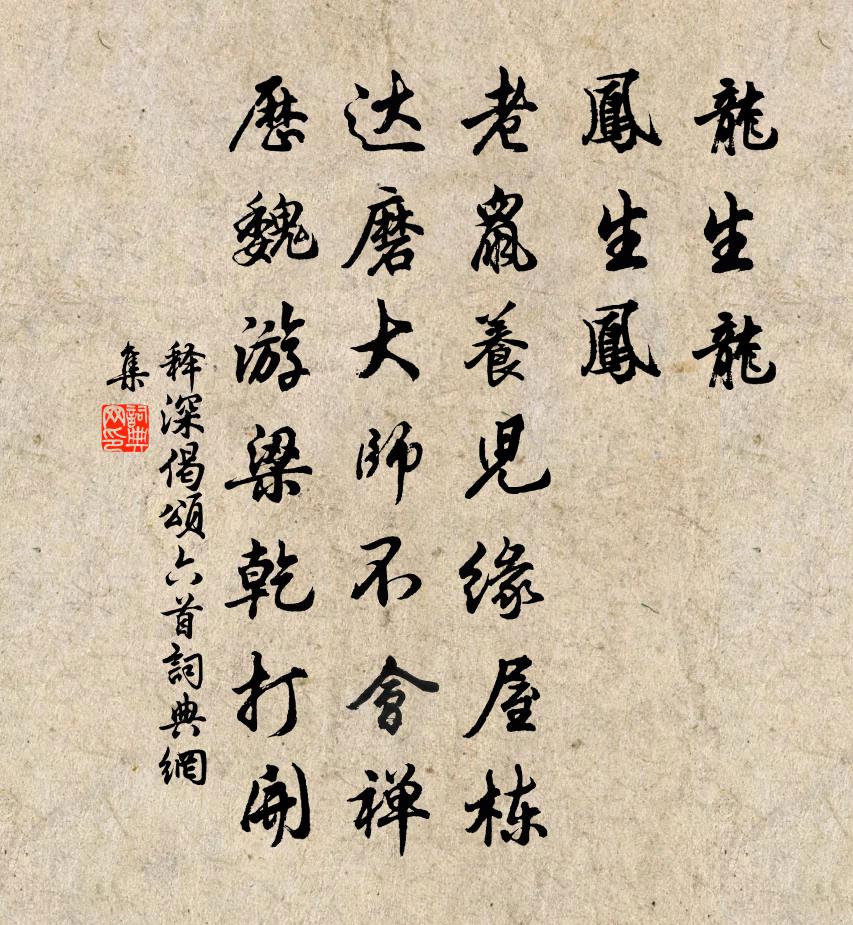 龍生龍
鳳生鳳
老鼠養兒緣屋栋
达磨大師不會禅
歷魏游梁乾打開
释深偈頌六首詞典網
集
詞典网印